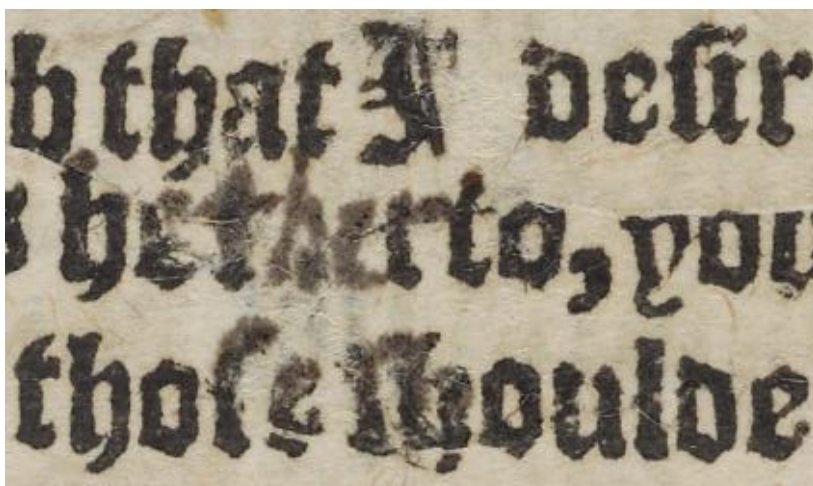 h that I deſir
s hetherto, you
thoſe ſhoulde